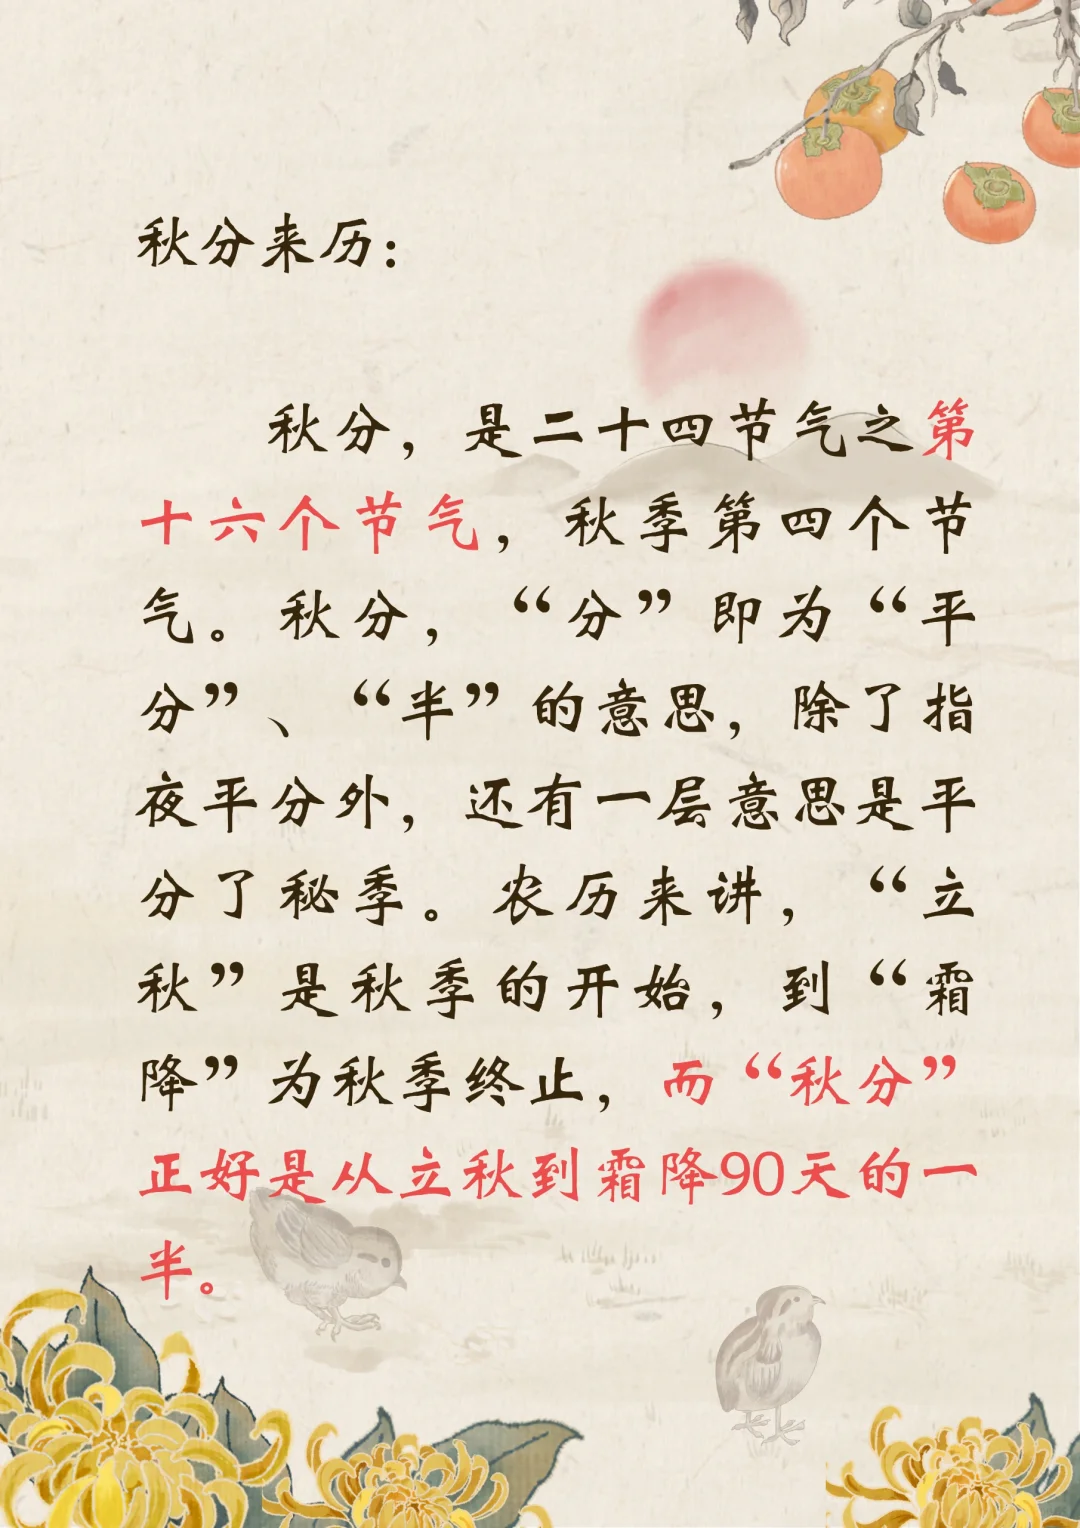 秋分来历：
秋分，是二十四节气之第
十六个节气，秋季第四个节
气。秋分，“分”即为“平
分”、“半”的意思，除了指
夜平分外，还有一层意思是平
分了秘季。农历来讲，“立
秋”是秋季的开始，到“霜
降”为秋季终止，而“秋分”
正好是从立秋到霜降90天的一
半。